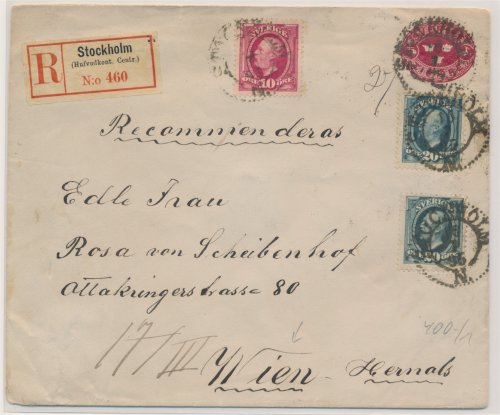 R
Stockholm
(Hufvudkont. Centr.)
N:o 460
SVERIGE
10 ÖRE
SVERIGE
20
SVERIGE
20 ÖRE
Recommenderas
Edle Frau
Rosa von Scheibenhof
Ottakringerstrasse 80
17/III
Wien - Hernals
400-/